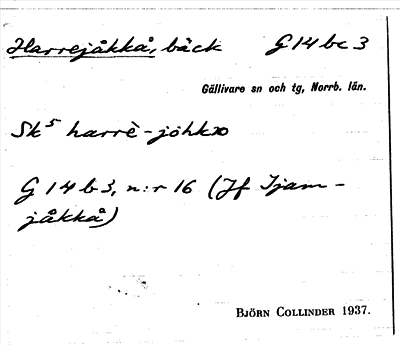 Harrejåkkå, bäck G14bc3
Gällivare sn och tg, Norrb. län.
Sk⁵ harrè-jòhkɔ
G14b3, n:r 16 (Jf Tjam-
jåkkå)
BJÖRN COLLINDER 1937.